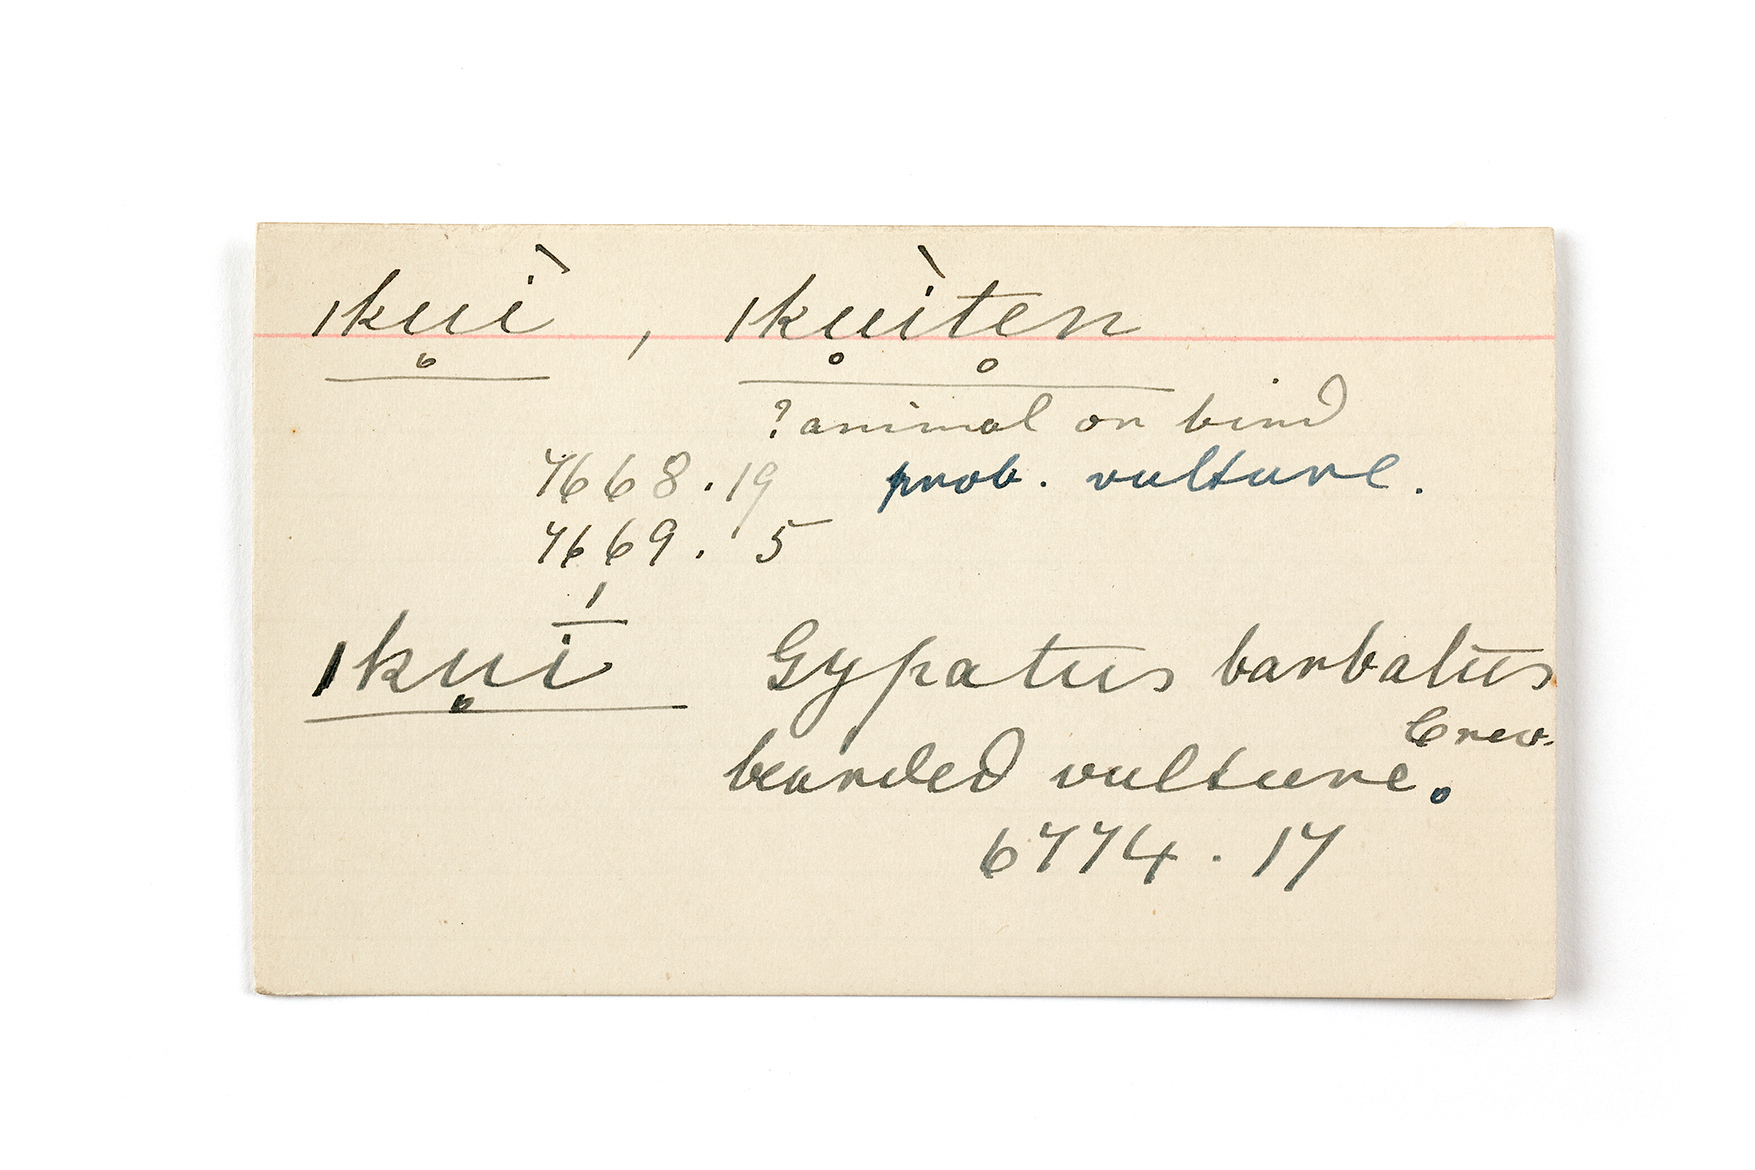 ǀku̥ì, ǀku̥ìte̥n
?animal or bird
7668.19 prob. vulture.
7669. 5
ǀku̥ī́ Gypatus barbatus
Crev.
bearded vulture.
6774.17